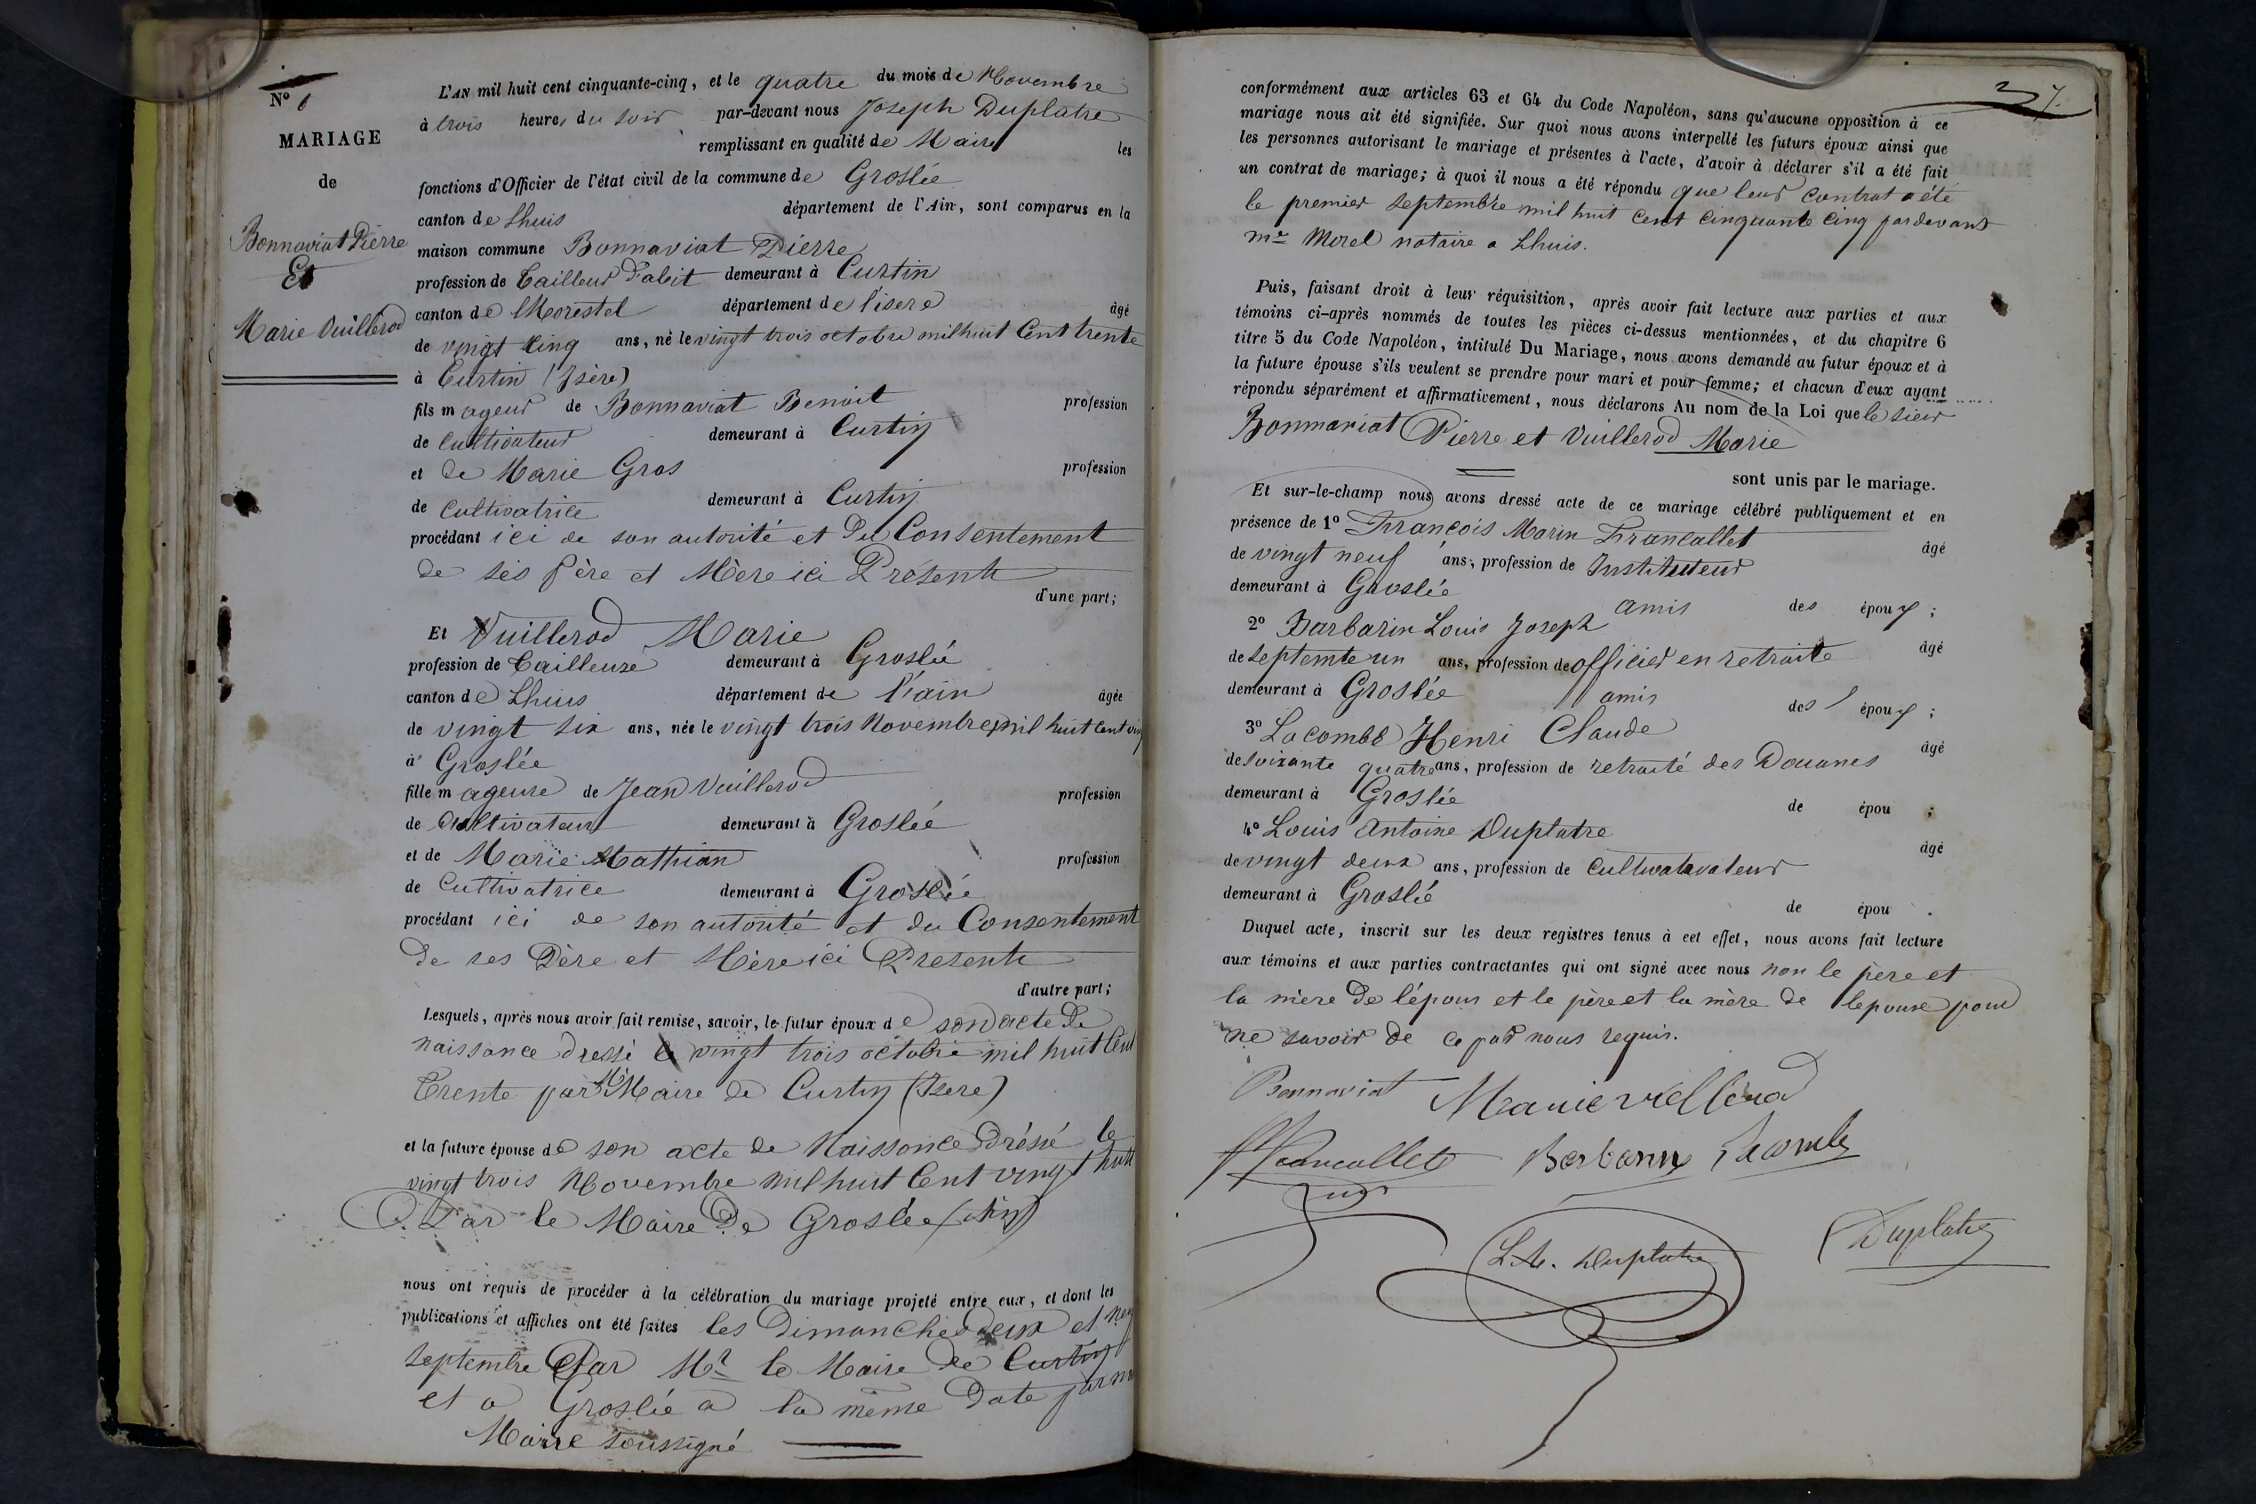 N° 6
MARIAGE
de
Bonnaviat Pierre
Et
Marie Vuillerod
L'AN mil huit cent cinquante-cinq, et le quatre du mois de Novembre
à trois heures du soir par-devant nous Joseph Duplatre
remplissant en qualité de Maire les
fonctions d'Officier de l'état civil de la commune de Groslée
canton de Lhuis département de l'Ain, sont comparus en la
maison commune Bonnaviat Pierre
profession de Tailleur d'abit demeurant à Curtin
canton de Morestel département de l'isere âgé
de vingt cinq ans, né le vingt trois octobre mil huit Cent trente
à Curtin (Isère)
fils mageur de Bonnaviat Benoit profession
de Cultivateur demeurant à Curtin
et de Marie Gros profession
de Cultivatrice demeurant à Curtin
procédant ici de son autorité et du Consentement
de ses père et Mère ici Presents
d'une part;
Et Vuillerod Marie
profession de Tailleuse demeurant à Groslée
canton de Lhuis département de l'ain âgée
de vingt six ans, née le vingt trois Novembre mil huit Cent
à Groslée
fille mageure de Jean Vuillerod profession
de Cultivateur demeurant à Groslée
et de Marie Mathian profession
de Cultivatrice demeurant à Groslée
procédant ici de son autorité et du Consentement
de ses Père et Mère ici Presents
d'autre part;
Lesquels, après nous avoir fait remise, savoir, le futur époux de son acte de
naissance dressé le vingt trois octobre mil huit Cent
Trente par Mr Maire de Curtin (Isere)
et la future épouse de son acte de Naissance Dréssé le
vingt trois Novembre mil huit Cent vingt huit
Par le Maire De Groslée (Ain)
nous ont requis de procéder à la célébration du mariage projeté entre eux, et dont les
publications et affiches ont été faites les Dimanches deux et neuf
septembre Par Mr le Maire de Curtin
et a Groslée a la même Date par
Maire soussigné
37.
conformément aux articles 63 et 64 du Code Napoléon, sans qu'aucune opposition à ce
mariage nous ait été signifiée. Sur quoi nous avons interpellé les futurs époux ainsi que
les personnes autorisant le mariage et présentes à l'acte, d'avoir à déclarer s'il a été fait
un contrat de mariage; à quoi il nous a été répondu que leur contrat a été
le premier septembre mil huit cent cinquante cinq pardevant
mre Morel notaire a Lhuis.
Puis, faisant droit à leur réquisition, après avoir fait lecture aux parties et aux
témoins ci-après nommés de toutes les pièces ci-dessus mentionnées, et du chapitre 6
titre 5 du Code Napoléon, intitulé Du Mariage, nous avons demandé au futur époux et à
la future épouse s'ils veulent se prendre pour mari et pour femme; et chacun d'eux ayant
répondu séparément et affirmativement, nous déclarons Au nom de la Loi que le sieur
Bonnaviat Pierre et Vuillerod Marie
sont unis par le mariage.
Et sur-le-champ nous avons dressé acte de ce mariage célébré publiquement et en
présence de 1° François Marin Francallet âgé
de vingt neuf ans, profession de Instituteur
demeurant à Groslée amis des époux;
2° Barbarin Louis Joseph âgé
de septemte un ans, profession de officier en retraite
demeurant à Groslée amis des époux;
3° Lacombe Henri Claude âgé
de soixante quatre ans, profession de retraité des Douanes
demeurant à Groslée de épou ;
4° Louis Antoine Duplatre âgé
de vingt deux ans, profession de Cultivatavateur
demeurant à Groslée de épou .
Duquel acte, inscrit sur les deux registres tenus à cet effet, nous avons fait lecture
aux témoins et aux parties contractantes qui ont signé avec nous non le père et
la mère de l'époux et le père et la mère de lepouse pour
ne savoir de ce par nous requis.
Bonnaviat Marie viellerod
Francallet Barbarin Lacombe
L A. Duplatre Duplatre